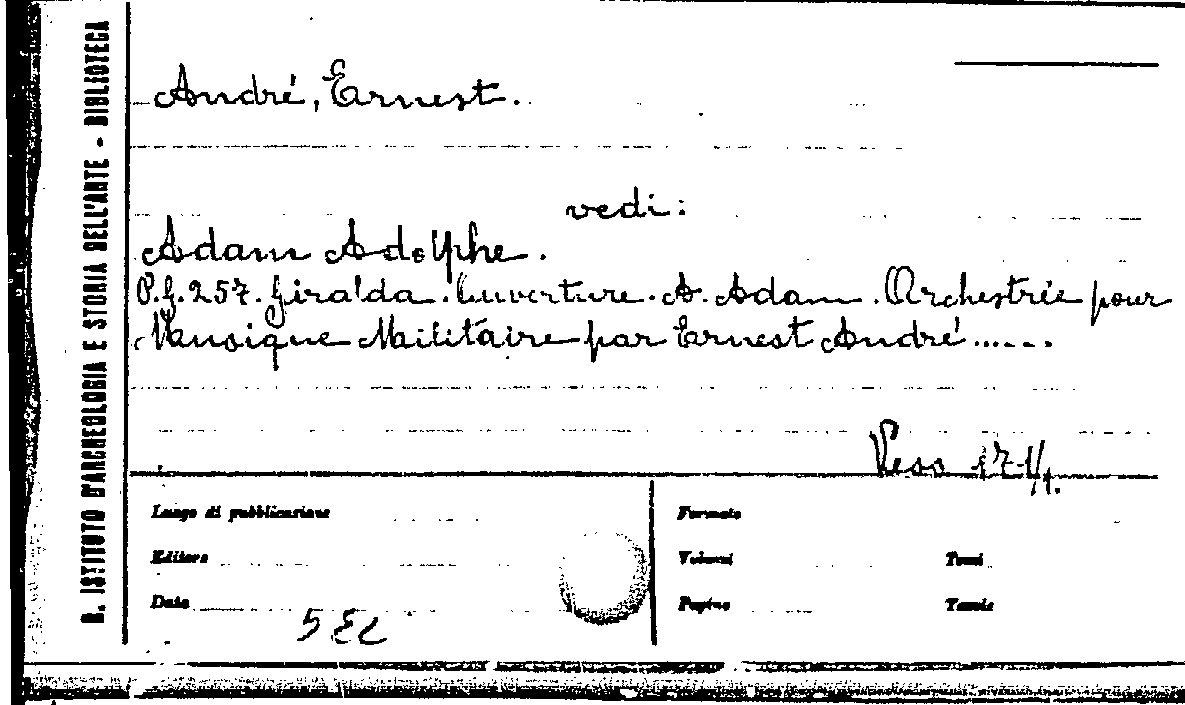 R. ISTITUTO D'ARCHEOLOGIA E STORIA DELL'ARTE - BIBLIOTECA
André, Ernest.
vedi:
Adam Adolphe.
P.G. 257. Giralda. Ouverture. A. Adam. Orchestrée pour
Musique Militaire par Ernest André .....
Peso 17 1/1.
Luogo di pubblicazione
Formato
Editore
Volumi
Tomi
Data
Pagine
Tavole
5 EL